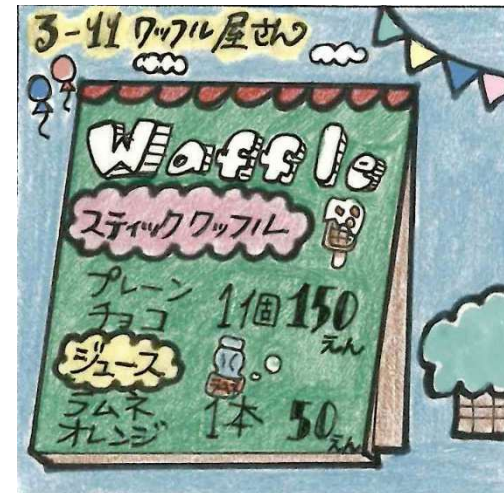 3-11 ワッフル屋さん
Waffle
スティックワッフル
プレーン
チョコ 1個 150えん
ジュース
ラムネ
ラムネ
オレンジ 1本 50えん